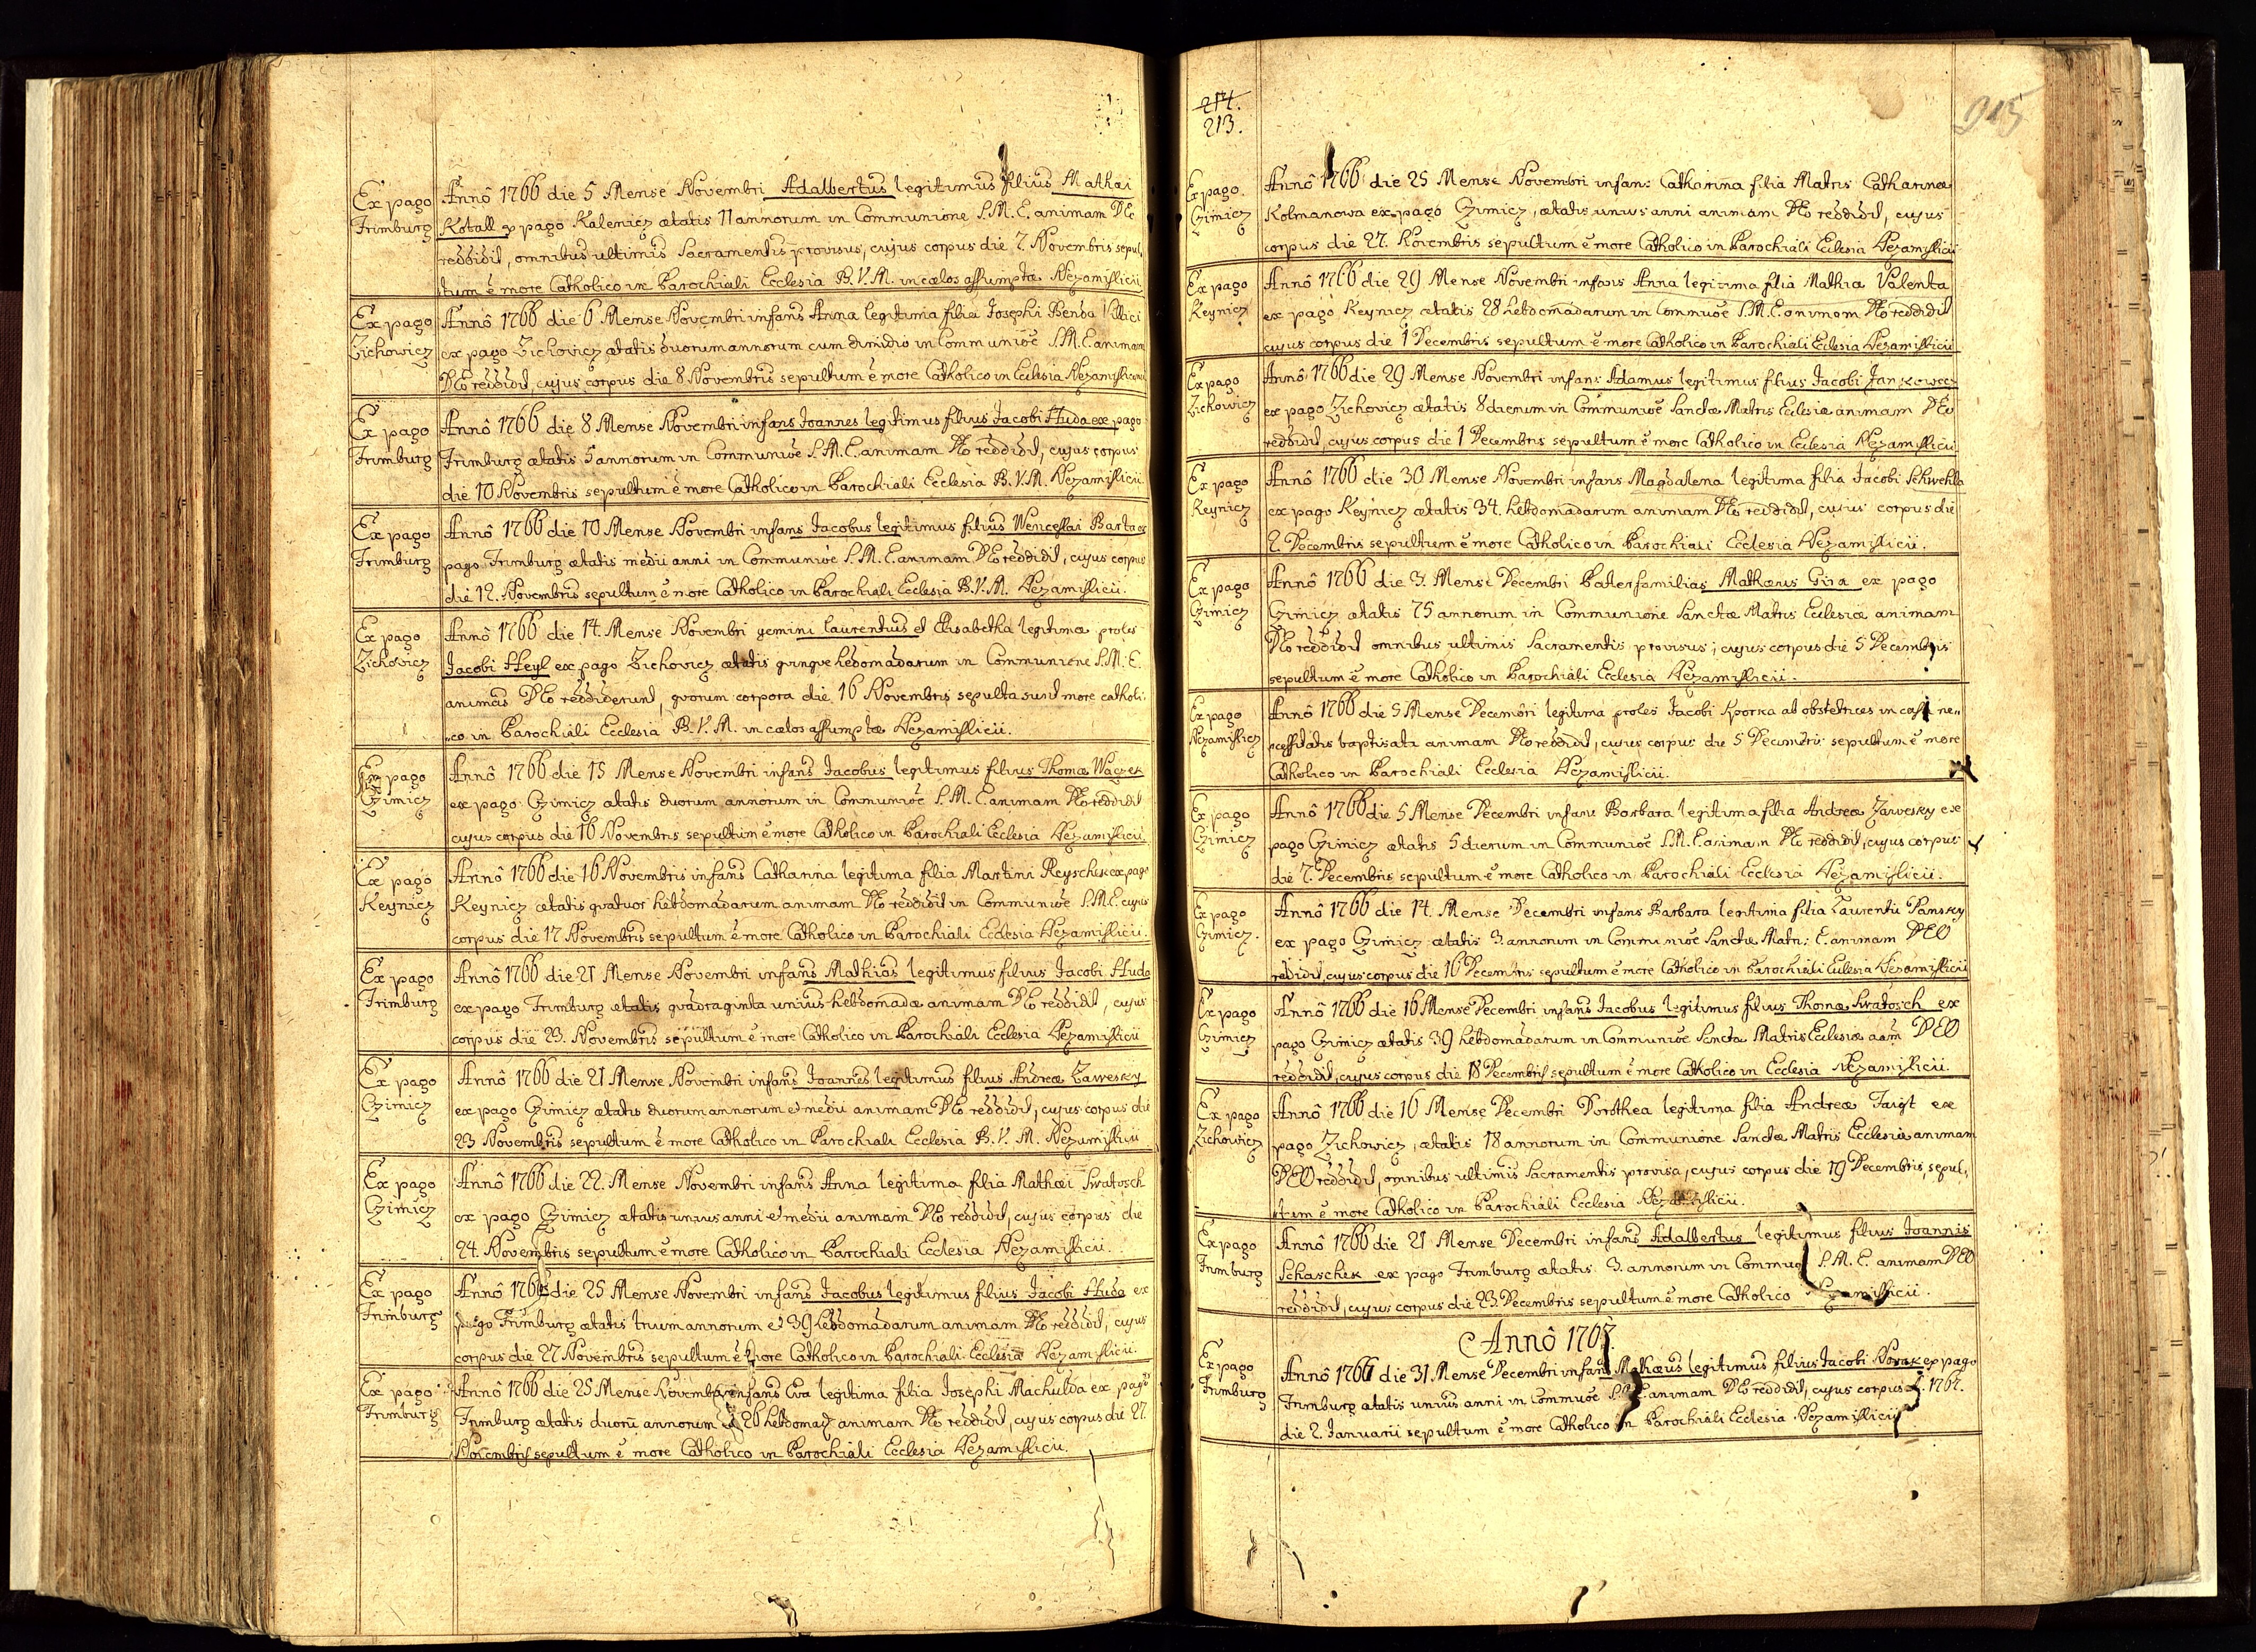 Ex pago
Frimburg
Annô 1766 die 5 Mense Novembri Adalbertus legitimus filius Mathæi
Kotall ex pago Kalenicz ætatis 11 annorum in Communione S.M.E. animam DEo
reddidit, omnibus ultimis Sacramentis provisus, cujus corpus die 7 Novembris sepul„
tum ê more Catholico in Parochiali Ecclesia B.V.M. in cælos assumptæ Nezamislicii
Ex pago
Zichowicz
Annô 1766 die 6 Mense Novembri infans Anna legitima filia Josephi Benda Villici
ex pago Zichovicz ætatis duorum annorum cum dimidio in Communiõe S.M.E. animam
DEo reddidit, cujus corpus die 8 Novembris sepultum ê more Catholico in Ecclesia
Ex pago
Frimburg
Annô 1766 die 8 Mense Novembri infans Joannes legitimus filius Jacobi Huda ex pago
Frimburg ætatis 5 annorum in Communiõe S.M.E. animam DEo reddidit, cujus corpus
die 10 Novembris sepultum ê more Catholico in Parochiali Ecclesia B.V.M. Nezamislicii
Ex pago
Frimburg
Annô 1766 die 10 Mense Novembri infans Jacobus legitimus filius Wenceslai Barta ex
pago Frimburg ætatis medii anni in Communiõe S.M.E. animam DEo reddidit, cujus corpus
die 12. Novembris sepultum ê more Catholico in Parochiali Ecclesia B.V.M. Nezamislicii.
Ex pago
Zichovicz
Annô 1766 die 14. Mense Novembri gemini Laurentius et Elisabetha legitimæ proles
Jacobi Heyl ex pago Zichovicz ætatis qvinqve hebdomadarum in Communione S.M.E.
animas DEo reddiderunt, qvorum corpora die 16 Novembris sepulta sunt more catholi„
„co in Parochiali Ecclesia B.V.M. in cælos assumptæ Nezamislicii.
Ex pago
Czimicz
Annô 1766 die 15 Mense Novembri infans Jacobus legitimus filius Thomæ Waczek
ex pago Czimicz ætatis duorum annorum in Communiõe S.M.E. animam DEo reddidit
cujus corpus die 16 Novembris sepultum ê more Catholico in Parochiali Ecclesia Nezamislicii.
Ex pago
Keynicz
Annô 1766 die 16 Novembris infans Catharina legitima filia Martini Reyschek ex pago
Keynicz ætatis qvatuor hebdomadarum animam DEo reddidit in Communiõe S.M.E. cujus
corpus die 17 Novembris sepultum ê more Catholico in Parochiali Ecclesia Nezamislicii.
Ex pago
Frimburg
Annô 1766 die 21 Mense Novembri infans Mathias legitimus filius Jacobi Huda
ex pago Frimburg ætatis qvadraginta unius hebdomadæ animam DEo reddidit, cujus
corpus die 23. Novembris sepultum ê more Catholico in Parochiali Ecclesia Nezamislicii
Ex pago
Czimicz
Annô 1766 die 21 Mense Novembri infans Joannes legitimus filius Andreæ Zawesky
ex pago Czimicz ætatis duorum annorum et medii animam DEo reddidit, cujus corpus die
23 Novembris sepultum ê more Catholico in Parochiali Ecclesia B.V.M. Nezamislicii
Ex pago
Czimicz
Annô 1766 die 22. Mense Novembri infans Anna legitima filia Mathæi Swatosch
ex pago Czimicz ætatis unius anni et medii animam DEo reddidit, cujus corpus die
24. Novembris sepultum ê more Catholico in Parochiali Ecclesia Nezamislicii.
Ex pago
Frimburg
Annô 1766 die 25 Mense Novembri infans Jacobus legitimus filius Jacobi Huda ex
pago Frimburg ætatis trium annorum et 39 hebdomadarum animam DEo reddidit, cujus
corpus die 27 Novembris sepultum ê more Catholico in Parochiali Ecclesia Nezamislicii.
Ex pago
Frimburg
Annô 1766 die 25 Mense Novembri infans Eva legitima filia Josephi Machulda ex pago
Frimburg ætatis duorũ annorum et 26 hebdomad. animam DEo reddidit, cujus corpus die 27.
Novembris sepultum ê more Catholico in Parochiali Ecclesia Nezamislicii.
214.
213.
215
Ex pago
Czimicz
Annô 1766 die 25 Mense Novembri infans Catharina filia Matris Catharinæ
Kolmanowa ex pago Czimicz, ætatis unius anni animam DEo reddidit, cujus
corpus die 27. Novembris sepultum ê more Catholico in Parochiali Eclesia Nezamislicii
Ex pago
Keynicz
Annô 1766 die 29 Mense Novembri infans Anna legitima filia Mathiæ Valenta
ex pago Keynicz ætatis 28 hebdomadarum in Commuõe S.M.E. animam DEo reddidit
cujus corpus die 1 Decembris sepultum ê more Catholico in Parochiali Eclesia Nezamislicii
Ex pago
Zichowicz
Annô 1766 die 29 Mense Novembri infans Adamus legitimus filius Jacobi Jankowec
ex pago Zichovicz ætatis 8 dierum in Communiõe Sanctæ Matris Ecclesiæ animam DEo
reddidit, cujus corpus die 1 Decembris sepultum ê more Catholico in Eclesia Nezamislicii
Ex pago
Keynicz
Annô 1766 die 30 Mense Novembri infans Magdalena legitima filia Jacobi Schwehla
ex pago Keynicz ætatis 34. hebdomadarum animam DEo reddidit, cujus corpus die
2. Decembris sepultum ê more Catholico in Parochiali Ecclesia Nezamislicii.
Ex pago
Czimicz
Annô 1766 die 3. Mense Decembri Paterfamilias Mathæus Gira ex pago
Czimicz ætatis 75 annorum in Communione Sanctæ Matris Ecclesiæ animam
DEo reddidit omnibus ultimis Sacramentis provisus, cujus corpus die 5 Decembris
sepultum ê more Catholico in Parochiali Ecclesia Nezamislicii.
Ex pago
Nezamislicz
Annô 1766 die 5 Mense Decembri legitima proles Jacobi Sporka ab obstetrices in casu ne„
cessitatis baptisata animam DEo reddidit, cujus corpus die 5 Decembris sepultum ê more
Catholico in Parochiali Ecclesia Nezamislicii.
Ex pago
Czimicz
Annô 1766 die 5 Mense Decembri infans Barbara legitima filia Andreæ Zawesky ex
pago Czimicz ætatis 5 dierum in Communiõe S.M.E. animam DEo reddidit, cujus corpus
die 7. Decembris sepultum ê more Catholico in Parochiali Ecclesia Nezamislicii.
Ex pago
Czimicz.
Annô 1766 die 14. Mense Decembri infans Barbara legitima filia Laurentii Pansky
ex pago Czimicz ætatis 3 annorum in Communiõe Sanctæ Matri: E. animam DEO
reddidit, cujus corpus die 16 Decembris sepultum ê more Catholico in Parochiali Eclesia Nezamislicii
Ex pago
Czimicz
Annô 1766 die 16 Mense Decembri infans Jacobus legitimus filius Thomæ Swatosch ex
pago Czimicz ætatis 39 hebdomadarum in Communiõe Sanctæ Matris Eclesiæ aãm DEO
reddidit, cujus corpus die 18 Decembris sepultum ê more Catholico in Ecclesia Nezamislicii.
Ex pago
Zichowicz
Annô 1766 die 16 Mense Decembri Dorothea legitima filia Andreæ Taigt ex
pago Zichowicz, ætatis 18 annorum in Communione Sanctæ Matris Ecclesiæ animam
DEO reddidit, omnibus ultimis Sacramentis provisa, cujus corpus die 19 Decembris, sepul„
tum ê more Catholico in Parochiali Ecclesia Nezamislicii.
Ex pago
Frimburg
Annô 1766 die 21 Mense Decembri infans Adalbertus legitimus filius Joannis
Schaschek ex pago Frimburg ætatis 3. annorum in S.M.E. animam DEO
reddidit, cujus corpus die 23. Decembris sepultum ê more Catholico Nezamislicii.
Annô 1767.
Ex pago
Frimburg
Annô 1766 die 31 Mense Decembri infans Mathæus legitimus filius Jacobi Novak ex pago
Frimburg ætatis unius anni in Commuõe animam DEo reddidit, cujus corpus 1767.
die 2. Januarii sepultum ê more Catholico in Parochiali Ecclesia Nezamislicii